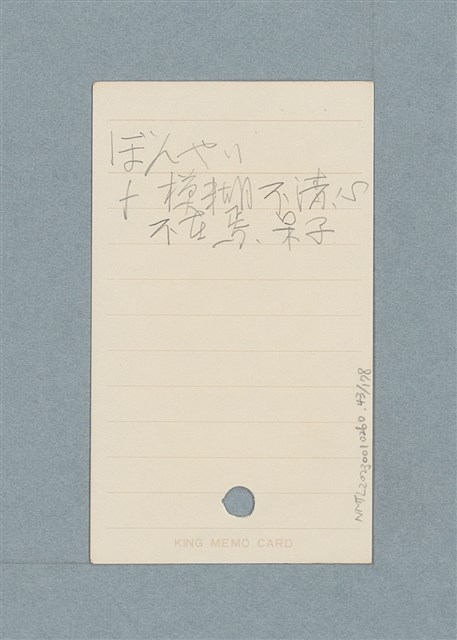 ぼんやり
模糊不清、心
不在焉、呆子
KING MEMO CARD
NMTL20230010690.43/178